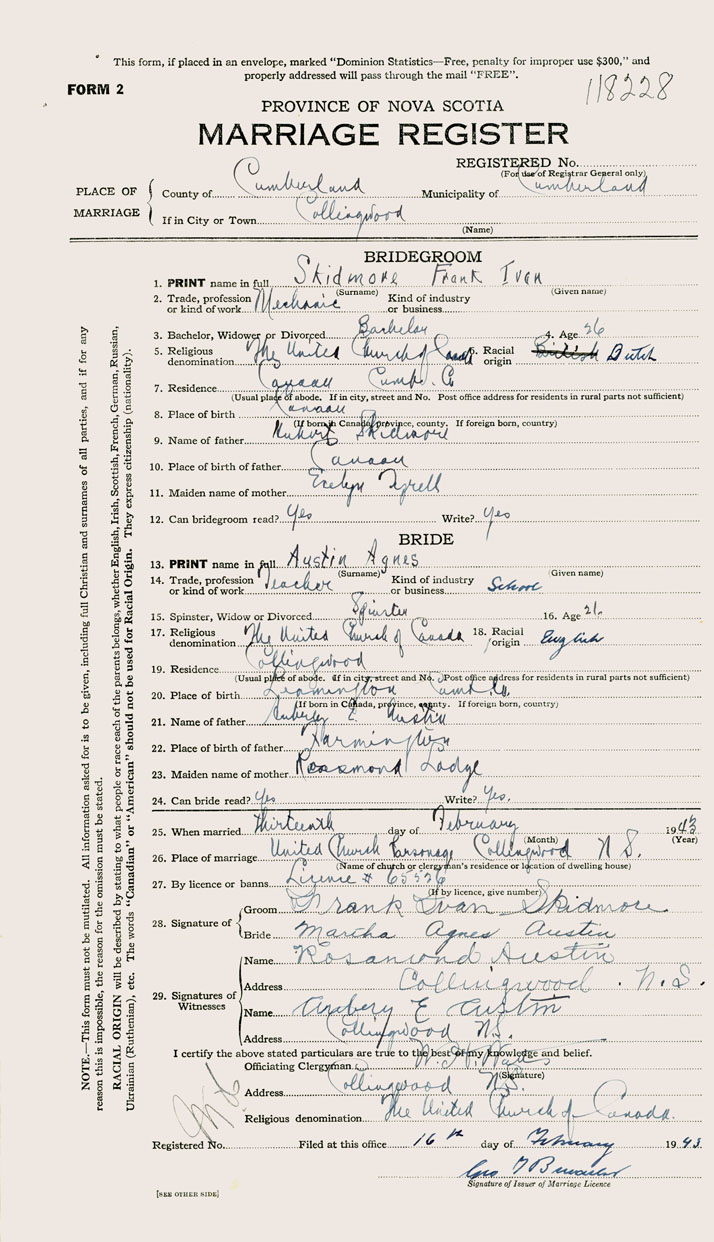 This form, if placed in an envelope, marked "Dominion Statistics—Free, penalty for improper use $300," and
properly addressed will pass through the mail "FREE".
FORM 2
118228
PROVINCE OF NOVA SCOTIA
MARRIAGE REGISTER
REGISTERED No.
(For use of Registrar General only)
PLACE OF MARRIAGE
County of Cumberland Municipality of Cumberland
If in City or Town Collingwood
(Name)
BRIDEGROOM
1. PRINT name in full Skidmore Frank Ivan
(Surname) (Given name)
2. Trade, profession or kind of work Mechanic Kind of industry or business
3. Bachelor, Widower or Divorced Bachelor 4. Age 26
5. Religious denomination The United Church of Canada 6. Racial origin British Dutch
7. Residence Canaan Cumb. Co
(Usual place of abode. If in city, street and No. Post office address for residents in rural parts not sufficient)
8. Place of birth Canaan
(If born in Canada, province, county. If foreign born, country)
9. Name of father Skidmore
10. Place of birth of father Canaan
11. Maiden name of mother Evelyn Tyrell
12. Can bridegroom read? Yes Write? Yes
BRIDE
13. PRINT name in full Austin Agnes
(Surname) (Given name)
14. Trade, profession or kind of work Teacher Kind of industry or business School
15. Spinster, Widow or Divorced Spinster 16. Age 21
17. Religious denomination The United Church of Canada 18. Racial origin English
19. Residence Collingwood
(Usual place of abode. If in city, street and No. Post office address for residents in rural parts not sufficient)
20. Place of birth Leamington Cumb Co.
(If born in Canada, province, county. If foreign born, country)
21. Name of father E. Austin
22. Place of birth of father
23. Maiden name of mother Rosamond Lodge
24. Can bride read? Yes Write? Yes.
25. When married Thirteenth day of February 1943
(Month) (Year)
26. Place of marriage United Church Parsonage Collingwood N.S.
(Name of church or clergyman's residence or location of dwelling house)
27. By licence or banns License # 65526
(If by licence, give number)
28. Signature of
Groom Frank Ivan Skidmore
Bride Martha Agnes Austin
29. Signatures of Witnesses
Name Rosamond Austin
Address Collingwood. N.S.
Name E Austin
Address Collingwood N.S.
I certify the above stated particulars are true to the best of my knowledge and belief.
Officiating Clergyman
(Signature)
Address Collingwood N.S.
Religious denomination The United Church of Canada.
Registered No. Filed at this office 16th day of February 1943.
Signature of Issuer of Marriage Licence
[SEE OTHER SIDE]
NOTE.—This form must not be mutilated. All information asked for is to be given, including full Christian and surnames of all parties, and if for any
reason this is impossible, the reason for the omission must be stated.
RACIAL ORIGIN will be described by stating to what people or race each of the parents belongs, whether English, Irish, Scottish, French, German, Russian,
Ukrainian (Ruthenian), etc. The words "Canadian" or "American" should not be used for Racial Origin. They express citizenship (nationality).